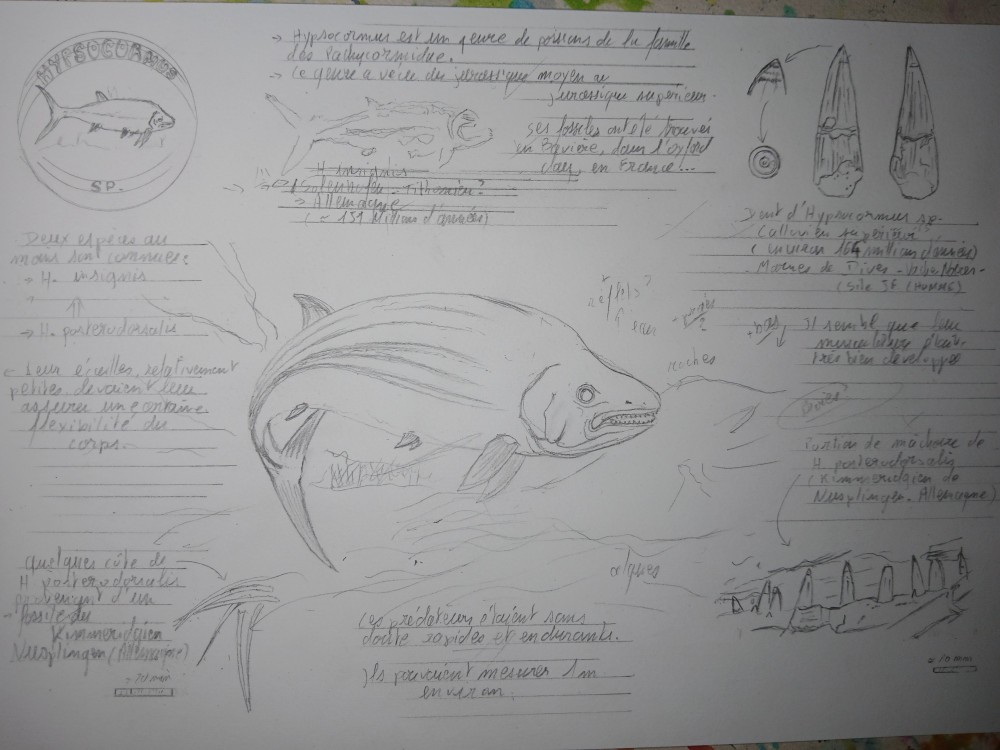 HYPSOCORMUS
SP.
→ Hypsocormus est un genre de poissons de la famille
des Pachycormidae.
→ Ce genre a vécu du jurassique moyen au
jurassique supérieur.
ses fossiles ont été trouvés
en Bavière, dans l'oxford
clay, en France...
H. insignis
Solenhofen - Tithonien?
→ Allemagne
(~ 151 Millions d'années)
Dent d'Hypsocormus sp.
Callovien supérieur
(environ 164 millions d'années)
Marnes de Dives -
(Site
Deux espèces au
moins sont connues:
→ H. insignis
→ H. posterodorsalis
Leur écailles, relativement
petites devaient leur
assurer une certaine
flexibilité du
corps.
reflets?
eau
roches
+ bas
Il semble que leur
musculature était
très bien développée
Portion de mâchoire de
H. posterodorsalis
(Kimmeridgien de
Nusplingen. Allemagne)
Quelques côte de
H. posterodorsalis
provenant d'un
fossile du
Kimmeridgien
Nusplingen (Allemagne)
~ 10 mm
algues
Ces prédateurs étaient sans
doute rapides et endurants.
Ils pouvaient mesurer 1m
environ.
~ 10 mm